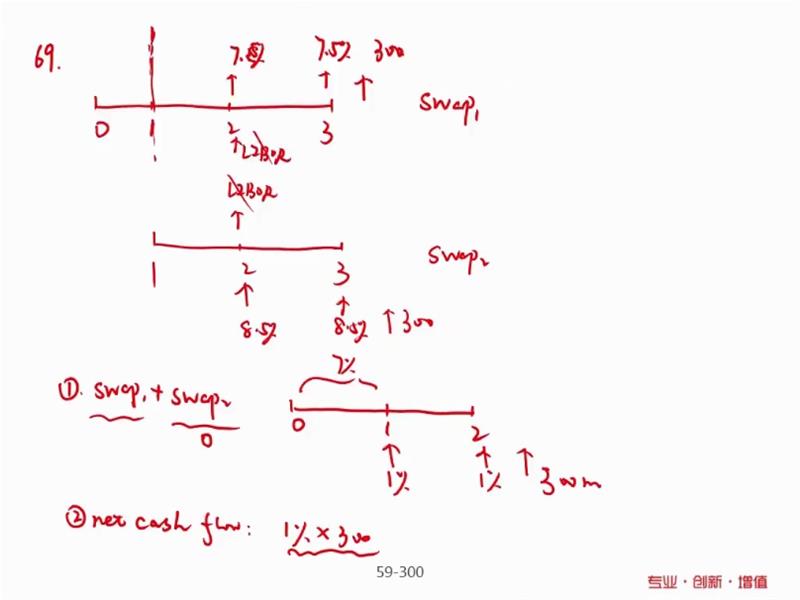 69.
7.5% 7.5% 300
0 1 2 3 Swap1
LIBOR
LIBOR
1 2 3 Swap2
8.5% 8.5% 300
7%
①. Swap1 + Swap2
0
0 1 2
1% 1% 300m
② net cash flow: 1% × 300
59-300
专业·创新·增值